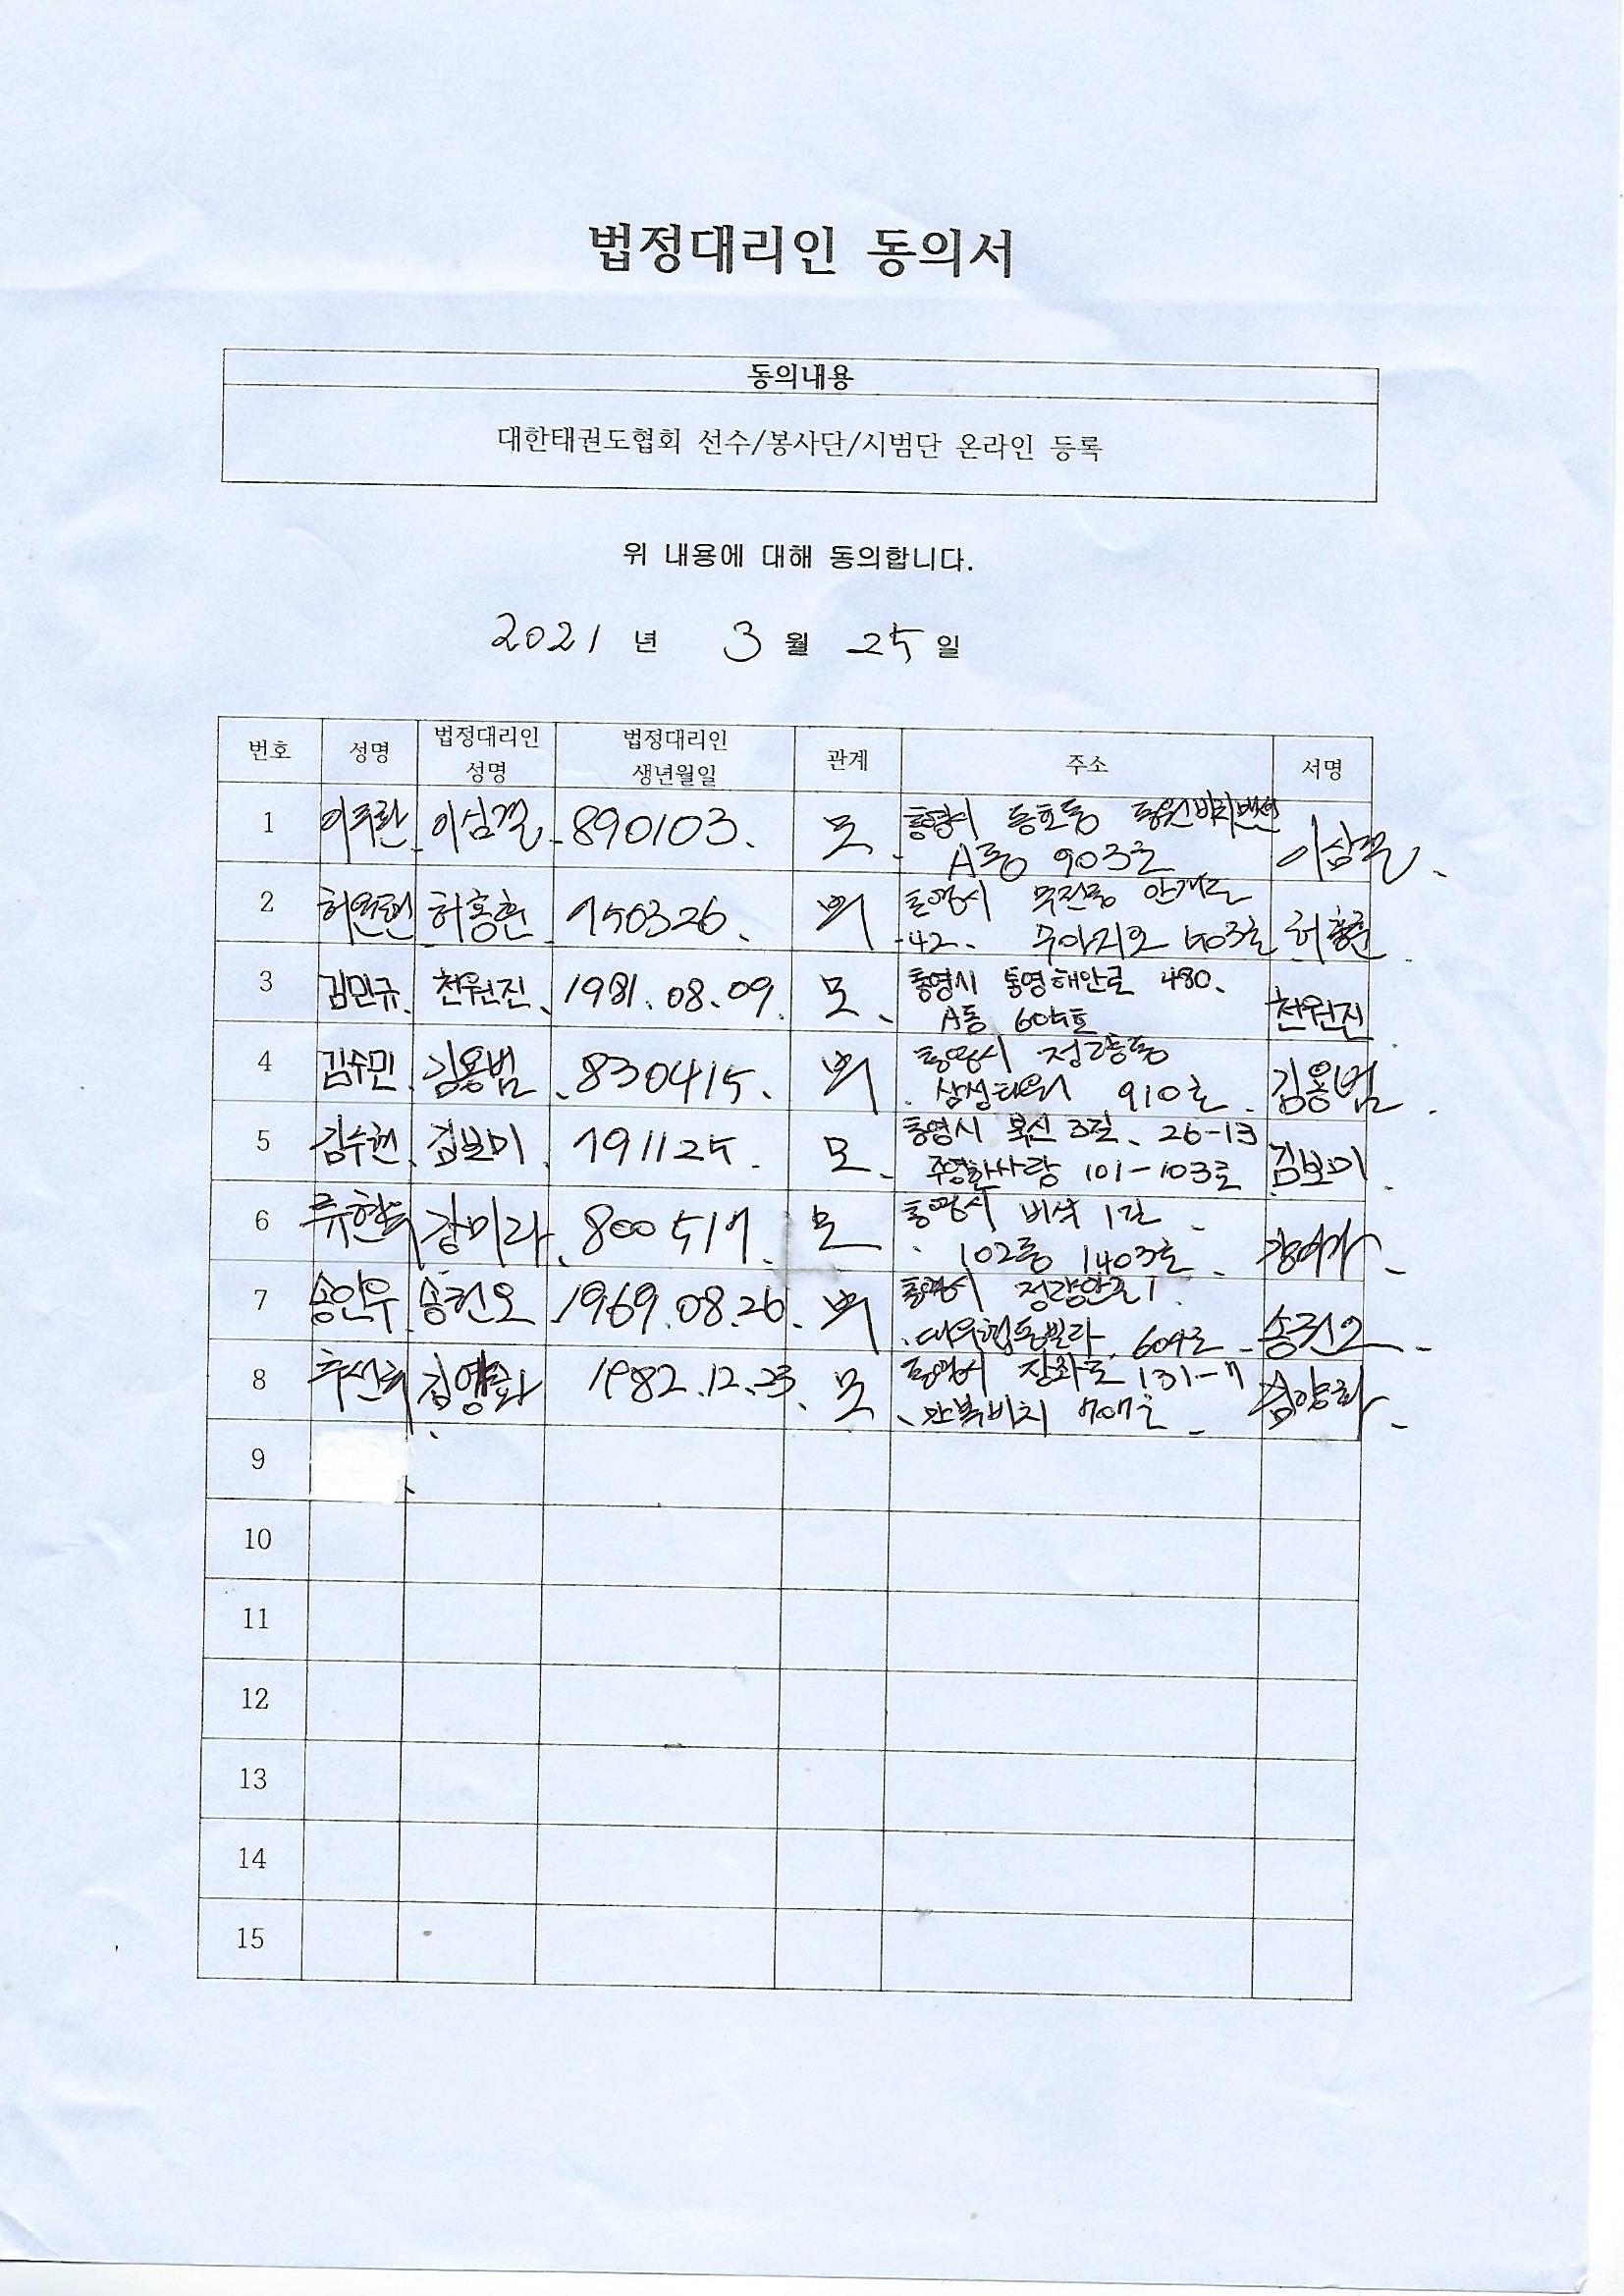 법정대리인 동의서
동의내용
대한태권도협회 선수/봉사단/시범단 온라인 등록
위 내용에 대해 동의합니다.
2021 년 3 월 25 일
번호 성명 법정대리인 성명 법정대리인 생년월일 관계 주소 서명
1 890103. 모 통영시 동호동
A동 903호
2 750326. 부 통영시 무전동 안개로
42. 503호
3 김민규 천원진 1981.08.09 모 통영시 통영해안로 480. 천원진
A동 605호
4 김수민 김용범 830415. 부 통영시 정량동 김용범
삼성타워 910호
5 김수현 김보미 791125. 모 통영시 북신3길 26-13 김보미
주영한사랑 101-103호
6 강미라 800517. 모 통영시 비석1길
102동 1403호
7 송인우 1969.08.26. 부 통영시 정량안길1
604호
8 1982.12.23. 모 통영시 장좌로 131-7
만복비치 707호
9
10
11
12
13
14
15